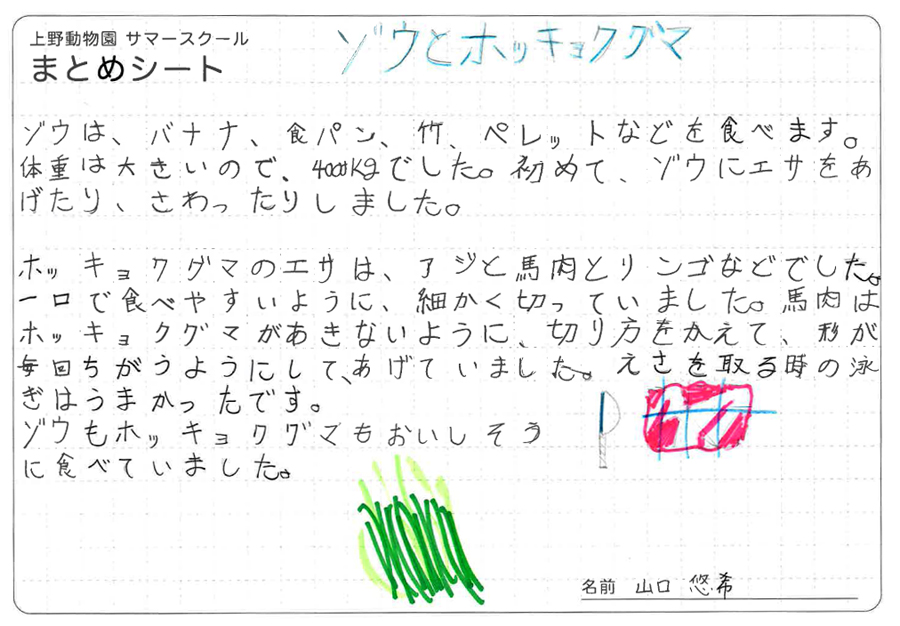 上野動物園 サマースクール
まとめシート
ゾウとホッキョクグマ
ゾウは、バナナ、食パン、竹、ペレットなどを食べます。
体重は大きいので、4000kgでした。初めて、ゾウにエサをあ
げたり、さわったりしました。
ホッキョクグマのエサは、アジと馬肉とリンゴなどでした。
一口で食べやすいように、細かく切っていました。馬肉は
ホッキョクグマがあきないように、切り方をかえて、形が
毎回ちがうようにして、あげていました。えさを取る時の泳
ぎはうまかったです。
ゾウもホッキョクグマもおいしそう
に食べていました。
名前 山口 悠希